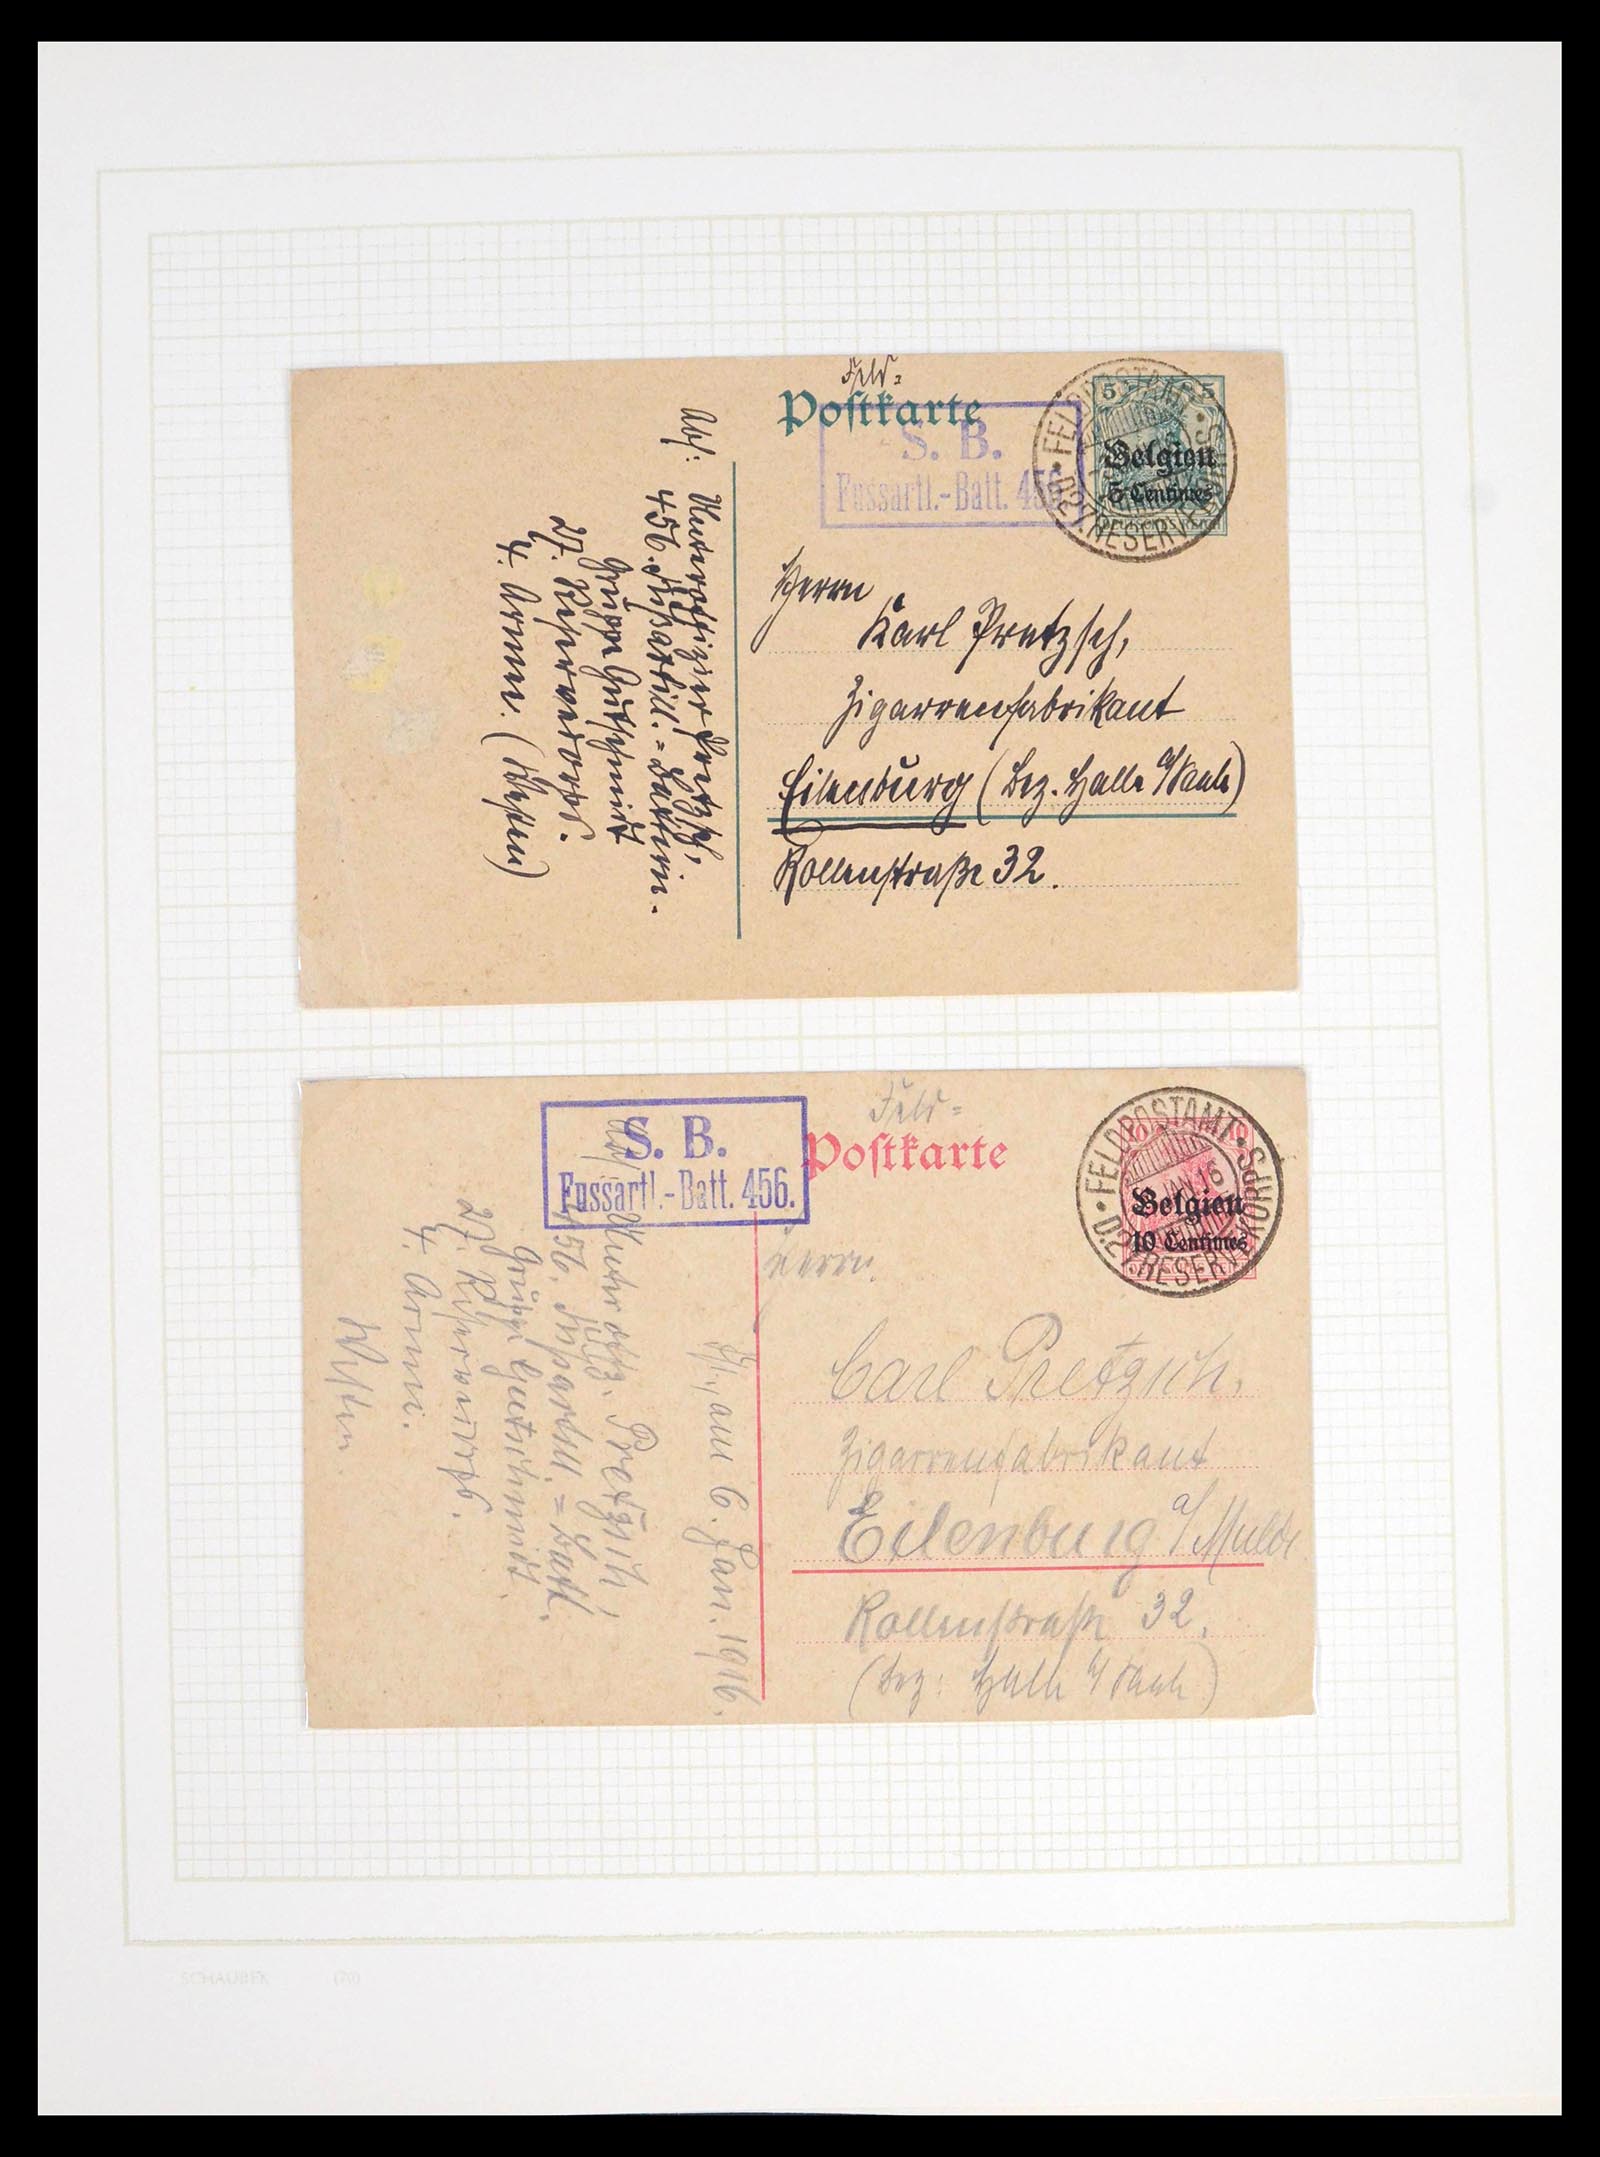 Feld=
Postkarte
S. B.
Fussartl.-Batt. 456.
FELDPOSTAMT
D. 27. RESERVEKORPS
5 5
Belgien
5 Centimes
DEUTSCHES REICH
Herrn
Karl Pretzsch,
Zigarrenfabrikant
Eilenburg (Bez. Halle a/Saale)
Rollenstraße 32.
Abs: Unteroffizier Pretzsch,
456. Fußartill.=Batterie.
Gruppe Gutschmidt
27. Reservekorps.
4. Armee. (Westen)
Feld=
Postkarte
S. B.
Fussartl.-Batt. 456.
FELDPOSTAMT
D. 27. RESERVEKORPS
JAN. 16
10 10
Belgien
10 Centimes
Herrn.
Carl Pretzsch,
Zigarrenfabrikant
Eilenburg a/Mulde
Rollenstraße 32.
(Bez: Halle a/Saale)
am 6. Jan. 1916.
Abs Unteroffz. Pretzsch,
456. Fußartill.=Batt.
Gruppe Gutschmidt
27. Reservekorps.
4. Armee.
Westen
SCHAUBEK (70)